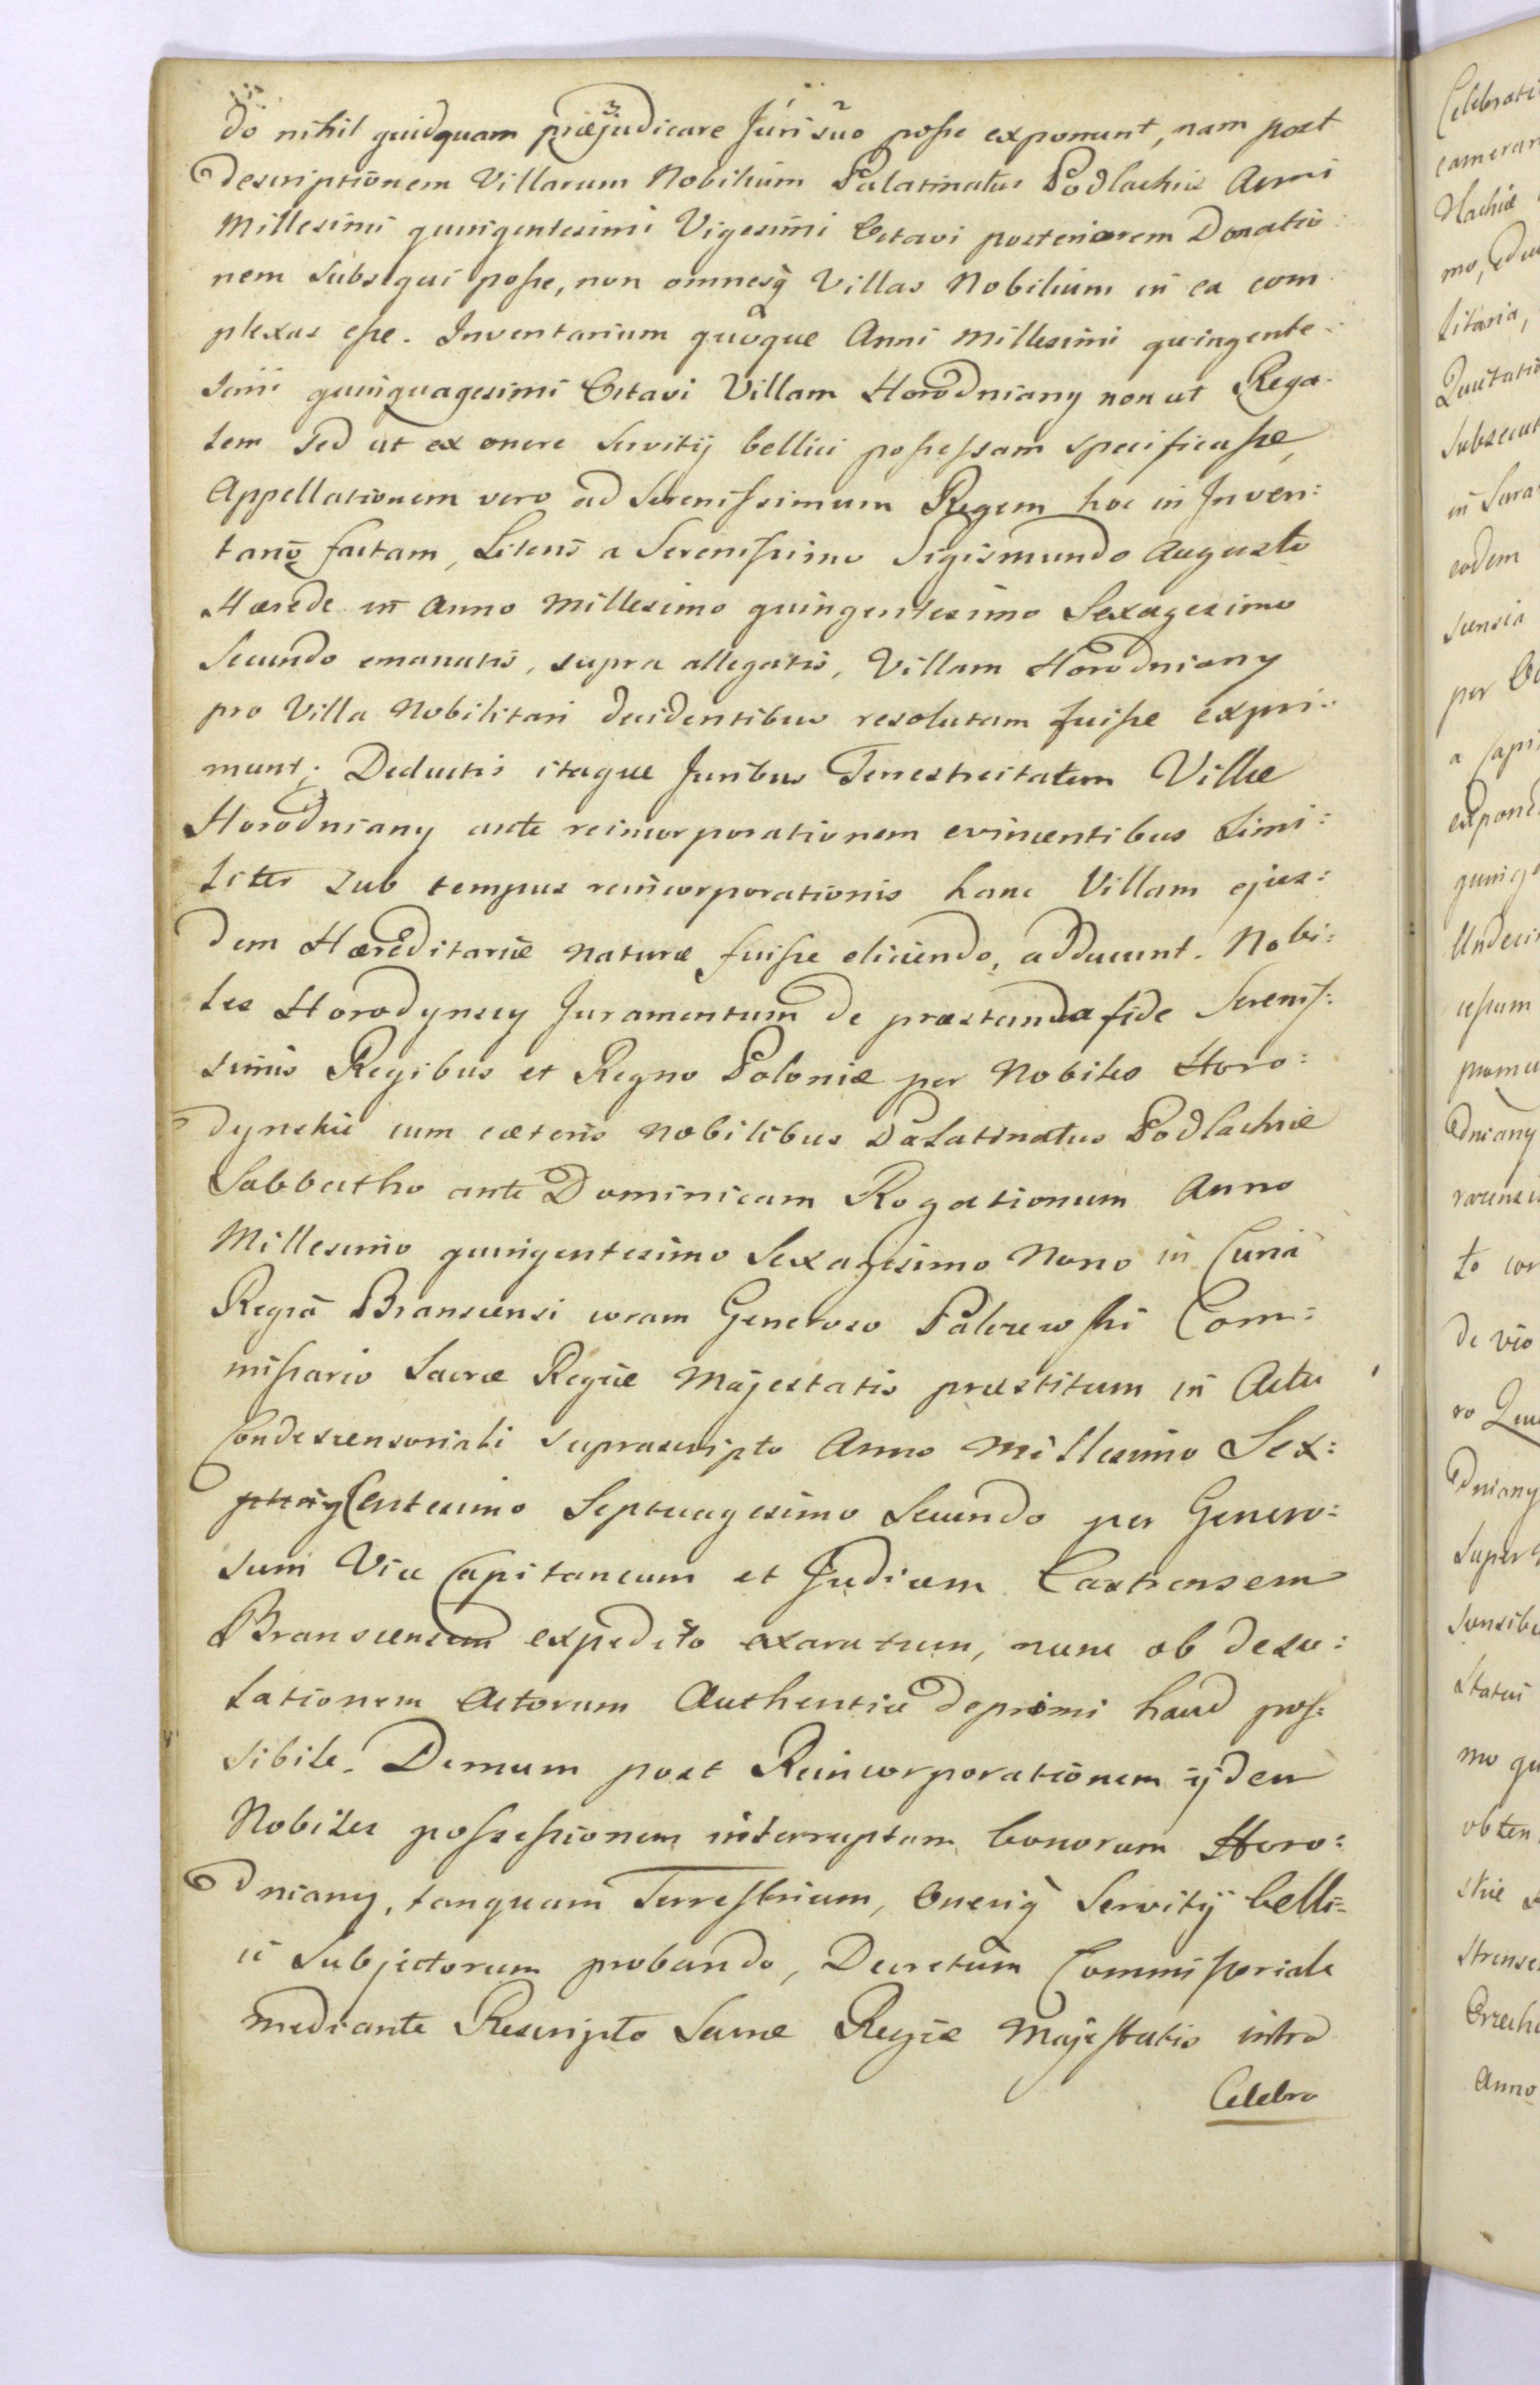 do nihil quidquam præjudicare Juri suo posse exponunt, nam post
descriptionem Villarum Nobilium Palatinatus Podlachiæ Anni
Millesimi quingentesimi Vigesimi Octavi posteriorem Donatio:
nem subsequi posse, non omnesq̀ Villas Nobilium in ea com
plexas esse. Inventarium quoque Anni Millesimi quingente:
simi quinquagesimi Octavi Villam Horodniany non ut Rega:
lem sed ut ex onere servitij bellici possessam specificasse,
Appellationem vero ad Serenissimum Regem hoc in Inven:
tario factam, Literis a Serenissimo Sigismundo Augusto
Hærede in Anno Millesimo quingentesimo Sexagesimo
Secundo emanatis, supra allegatis, Villam Horodniany
pro Villa Nobilitari decidentibus resolutam fuisse expri:
munt; Deductis itaque Juribus Terrestreitatem Villæ
Horodniany ante reincorporationem evincentibus Simi:
liter sub tempus reincorporationis hanc Villam ejus:
dem Hæreditariæ naturæ fuisse eliciendo, adducunt. Nobi:
les Horodynscy Juramentum de præstanda fide Serenis:
simis Regibus et Regno Poloniæ per Nobiles Horo:
dynskie cum cæteris Nobilibus Palatinatus Podlachiæ
Sabbatho ante Dominicam Rogationum Anno
Millesimo quingentesimo Sexagesimo Nono in Curia
Regia Branscensi coram Generoso Palczewski Com:
missario Sacræ Regiæ Majestatis præstitum in Actu
Condescensoriali suprascripto Anno Millesimo Sex:
Centesimo Septuagesimo Secundo per Genero:
sum Vice Capitaneum et Judicem Castrensem
Branscensem expedito exaratum, nunc ob deso:
lationem Actorum Authentice depromi haud pos:
sibile. Demum post Reincorporationem ijdem
Nobiles possessionem interruptam bonorum Horo:
dniany, tanquam Terrestrium, Oneriq̀ Servitij belli:
ci Subjectorum probando, Decretum Commissoriale
mediante Rescripto Sacræ Regiæ Majestatis intra
Celebra
Celebrati
mo,
litaria,
Quitatio
subsecut
eodem
per
a Capi
expone
quinge
Undeci
cessum
dniany
to
de
dniany
super
sensibu
statui
mo qu
obten
Anno